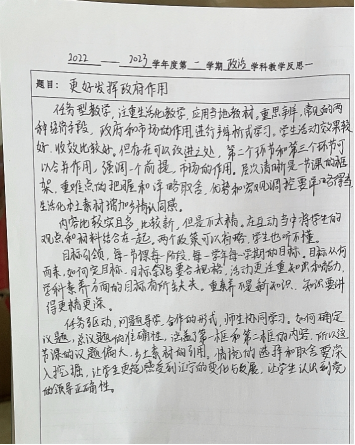 2022 — 2023 学年度第一学期 政治 学科教学反思一
题目： 更好发挥政府作用
任务型教学，注重生活化教学，应用乡地教材。重思辨，常见的两
种经济手段，政府和市场的作用，进行辨析式学习。学生活动效果较
好，收效比较好。但存在可以改进之处，第二个环节和第三个环节可
以合并作用，强调一个前提，市场的作用。层次清晰是一节课的框
架，重难点的把握和详略取舍，优势和宏观调控要详略得当
生活化乡土素材增加乡情认同感。
内容比较实且多，比较新，但是不太精。在互动当中将学生的
观点和材料结合在一起，两个政策可以将略，学生也听不懂。
目标引领，每一节课每一阶段、每一学年每一学期的目标。目标从何
而来，如何定目标，目标叙写要合规格，活动更注重知识和能力，
学科素养方面的目标有所缺失。重素养还是新知识、知识要讲
得更精更深。
任务驱动，问题导学，合作的形式，师生协同学习。如何确定
议题，总议题的准确性，涵盖第一框和第二框的内容，所以这
节课的议题偏大，乡土素材的引用，情境的选择和取舍要深
入挖掘，让学生更能感受到辽宁的变化与发展，让学生认识到党
的领导正确性。